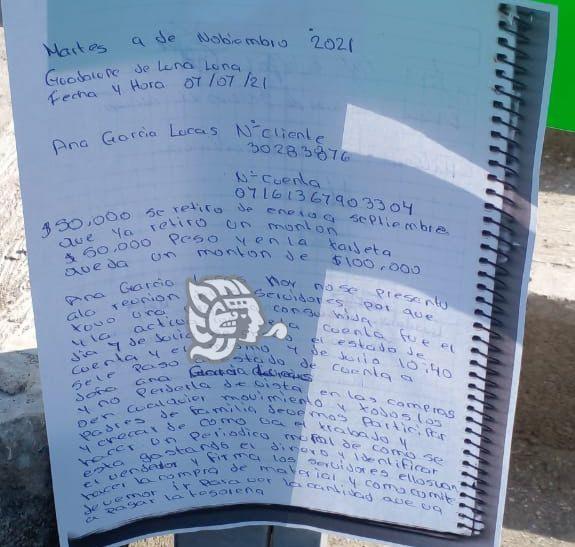 Martes 9 de Nobiembro 2021
Guadalupe de Luna Luna
Fecha y Hora 07/07/21
Ana Garcia Lucas N° Cliente
30283876
N° Cuenta
07161367903304
$50,000 se retiro de enero a septiembre
que ya retiro un monton
$50,000 Peso y en la tarjeta
queda un monton de $100,000
Ana Garcia Hoy no se presento
ala reunion servidores por que
tovo una consumido
y la activ cuenta fue el
dia 7 de Julio el estado de
cuenta y el de Julio 10:40
sele Paso estado de cuenta a
doña ana Garcia
y no Perderla de vista en las compras
Den cualquier movimiento y todos los
Padres de familia devemos Participar
y checar de como va trabado y
hacer un Periodico mural de como se
esta gastando el dinero y identificar
el vendedor y firma los servidores ellos van
hacer la compra de material y como comite
devemor ir Para ver la cantidad que va
a Pagar la tesorera